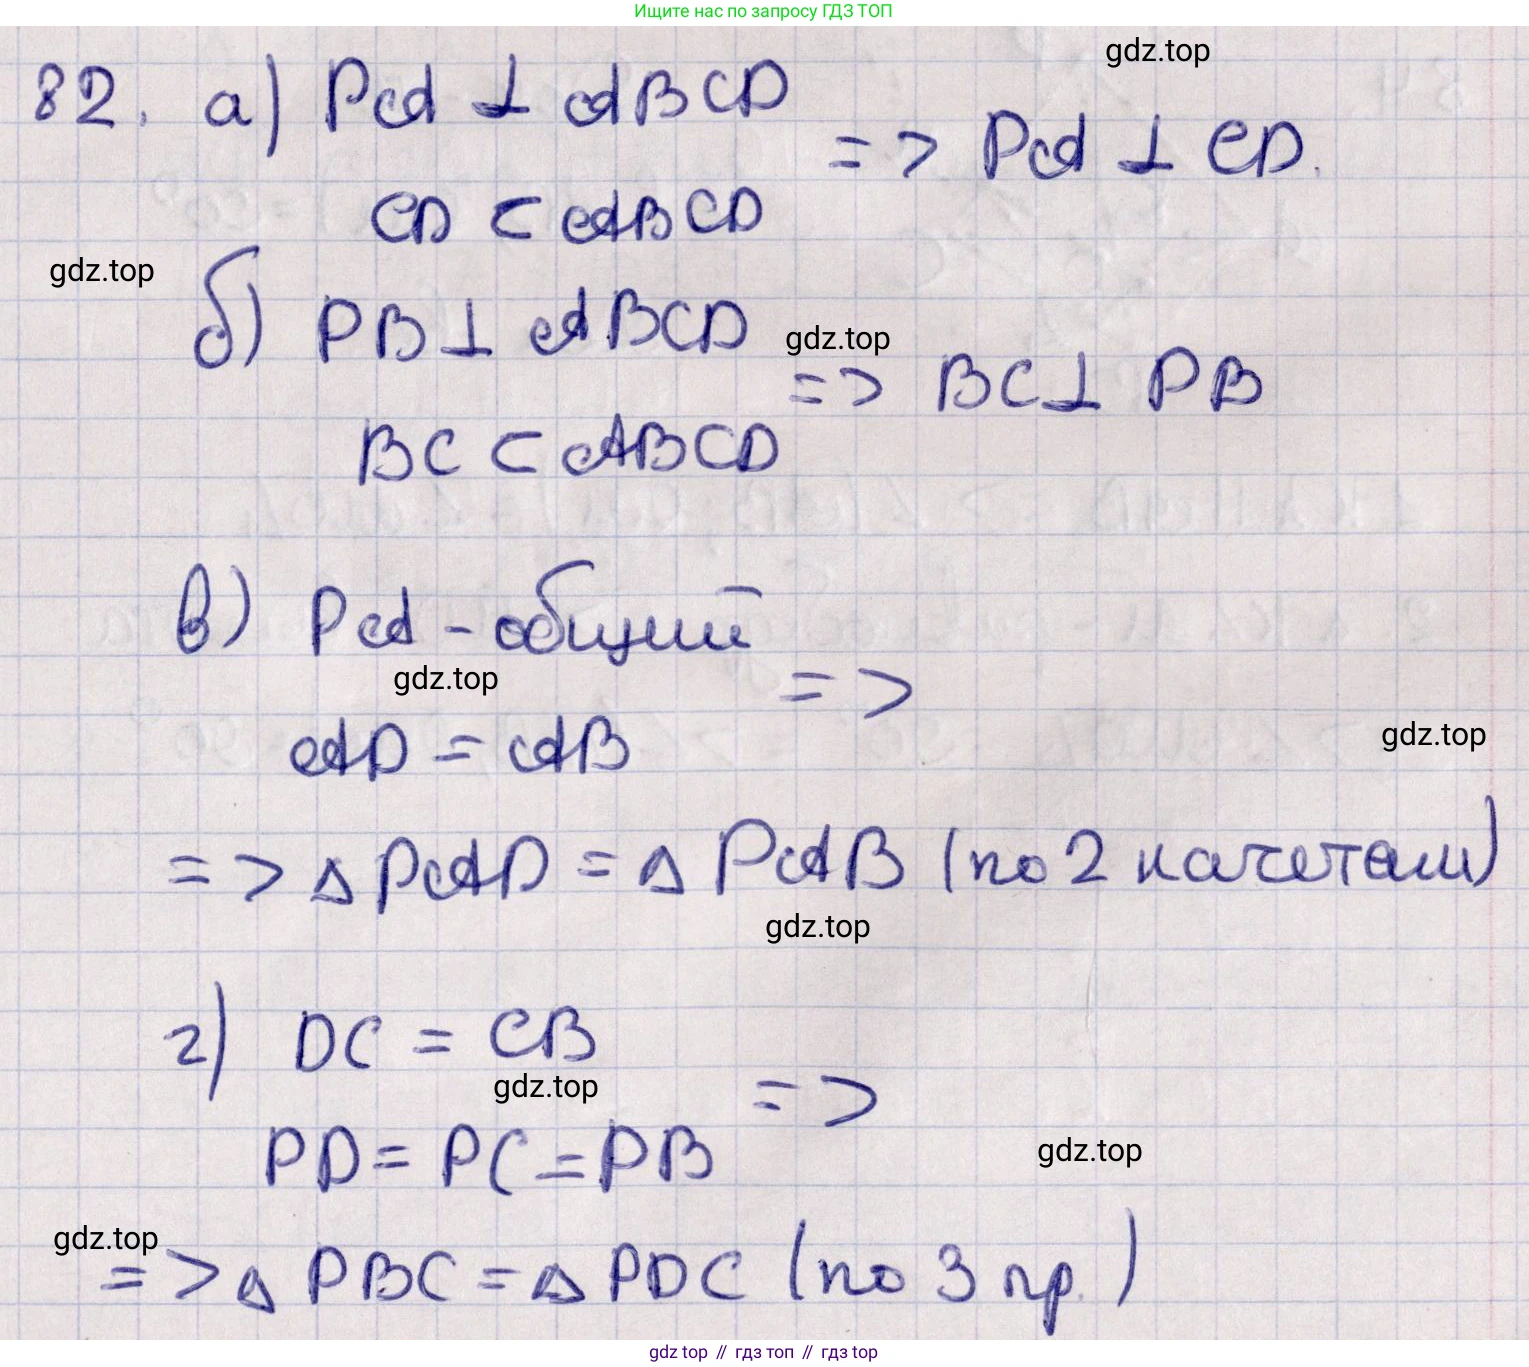 Ищите нас по запросу ГДЗ ТОП
gdz.top
82. а) PA ⊥ ABCD
=> PA ⊥ CD.
CD ⊂ ABCD
gdz.top
б) PB ⊥ ABCD
gdz.top
=> BC ⊥ PB
BC ⊂ ABCD
в) PA - общий
gdz.top
=>
AD = AB
gdz.top
=> △ PAD = △ PAB (по 2 катетам)
gdz.top
г) DC = CB
gdz.top
=>
PD = PC = PB
gdz.top
gdz.top
=> △ PBC = △ PDC (по 3 пр.)
gdz.top // гдз топ // гдз top